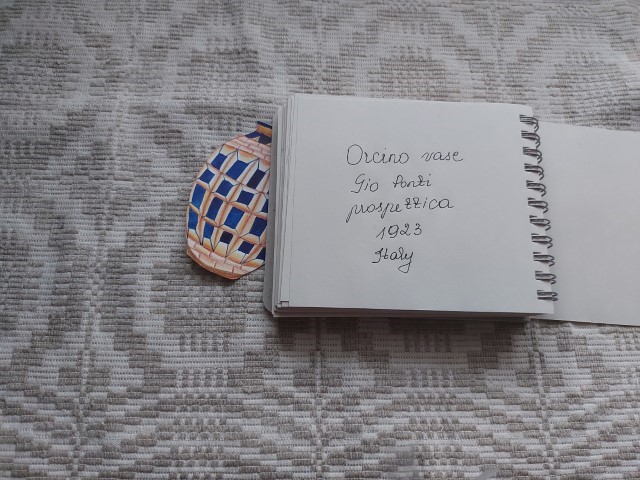 Orcino vase
Gio Ponti
prospettica
1923
Italy